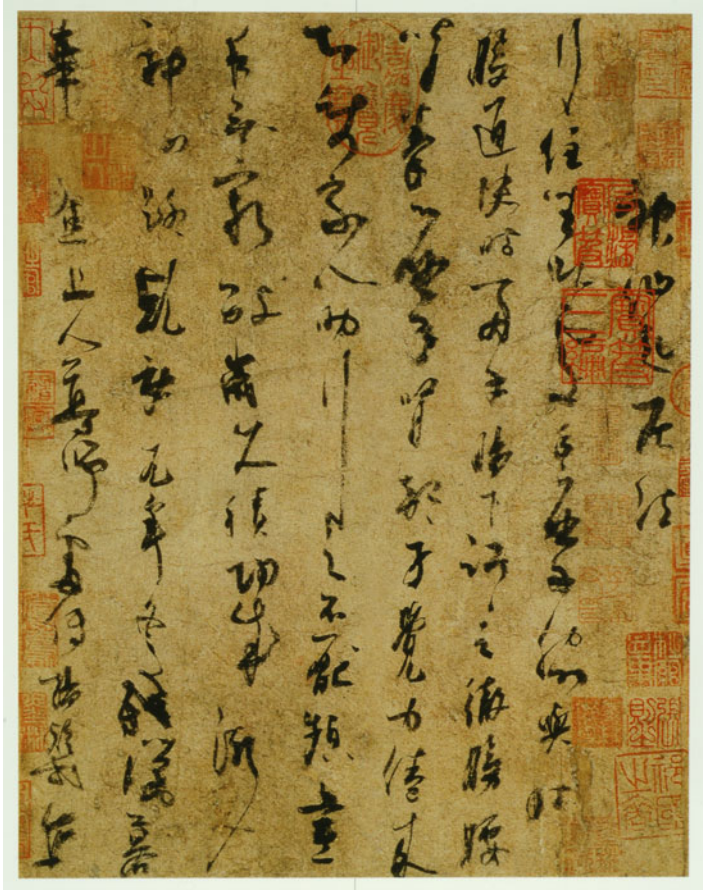 神仙起居法
行住坐臥處手摩脅與肚
心腹通快時兩手腸下踞踞之徹膀腰
背拳摩腎部才覺力倦來
即使家人助行之不厭頻晝
夜無窮數歲久積功成漸入
神仙路乾祐元年冬殘臘暮
華焦上人尊師處傳楊凝式